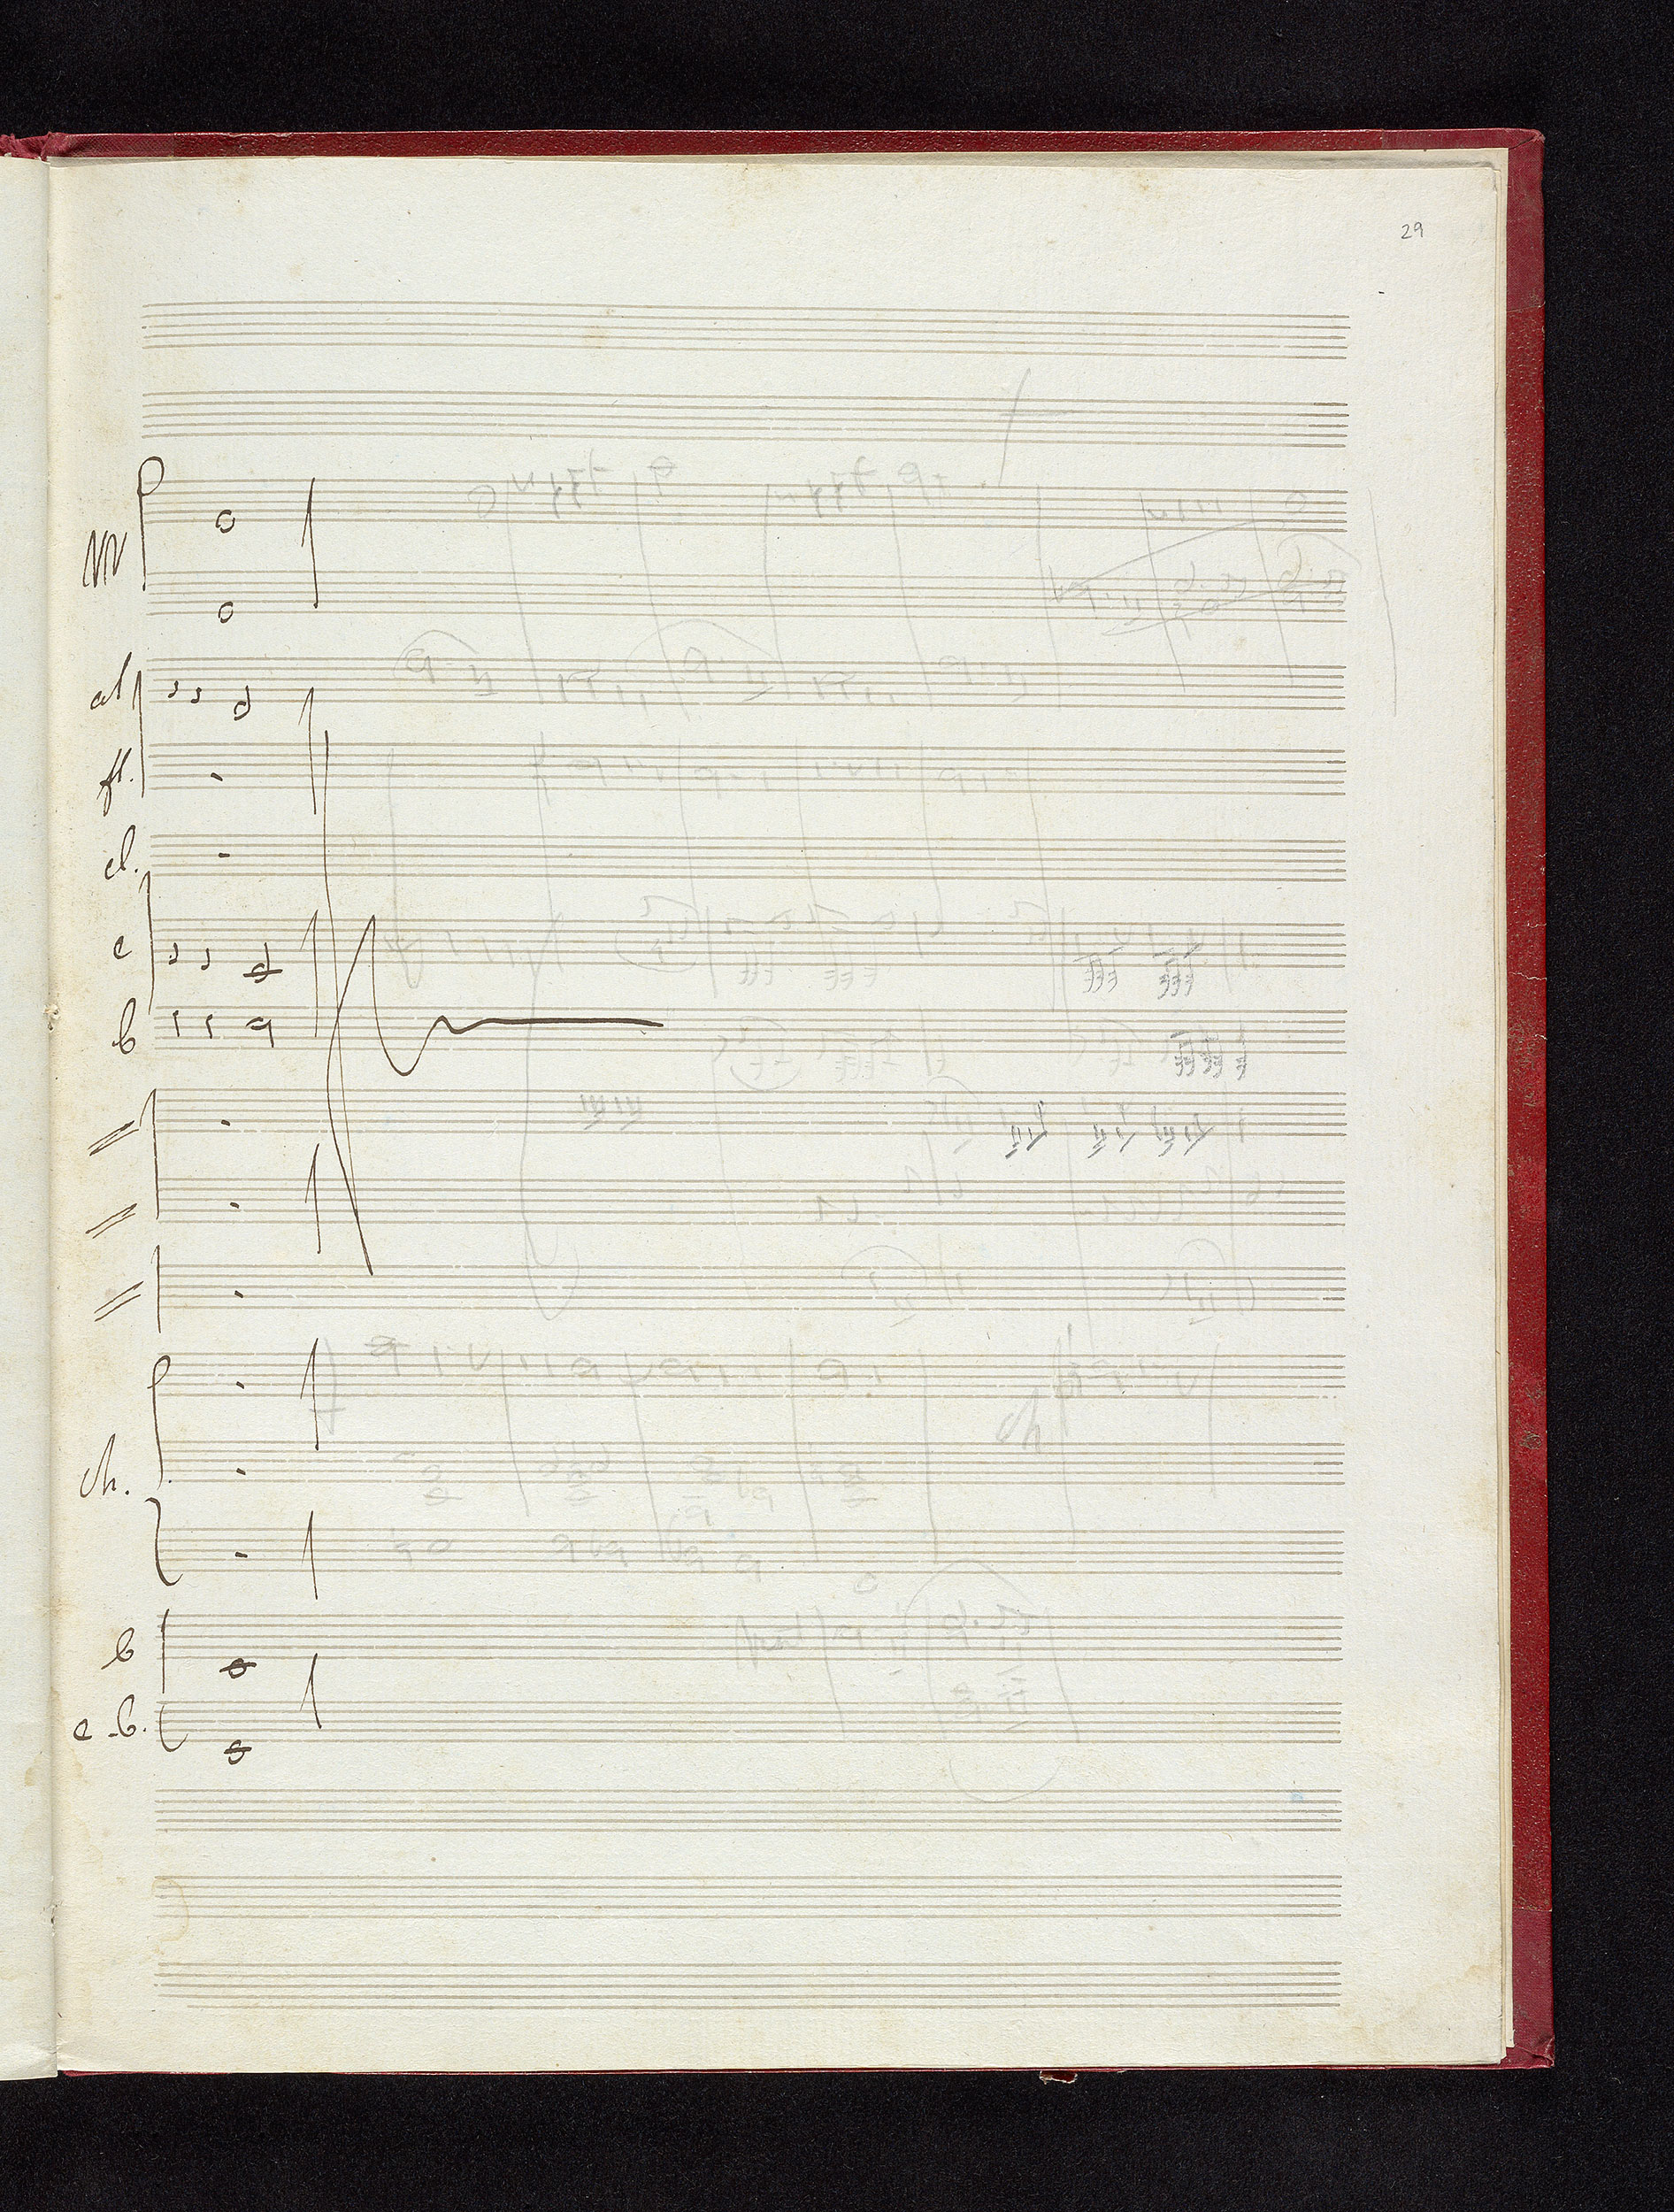 29
VV
al
fl.
cl.
c
b
ch.
b
c-b.